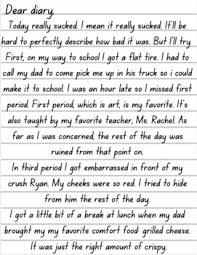 Dear diary,
Today really sucked. I mean it really sucked. It'll be
hard to perfectly describe how bad it was. But I'll try.
First, on my way to school I got a flat tire. I had to
call my dad to come pick me up in his truck so i could
make it to school. I was an hour late so I missed first
period. First period, which is art, is my favorite. It's
also taught by my favorite teacher, Ms. Rachel. As
far as I was concerned, the rest of the day was
ruined from that point on.
In third period I got embarrassed in front of my
crush Ryan. My cheeks were so red. I tried to hide
from him the rest of the day.
I got a little bit of a break at lunch when my dad
brought my my favorite comfort food: grilled cheese.
It was just the right amount of crispy.